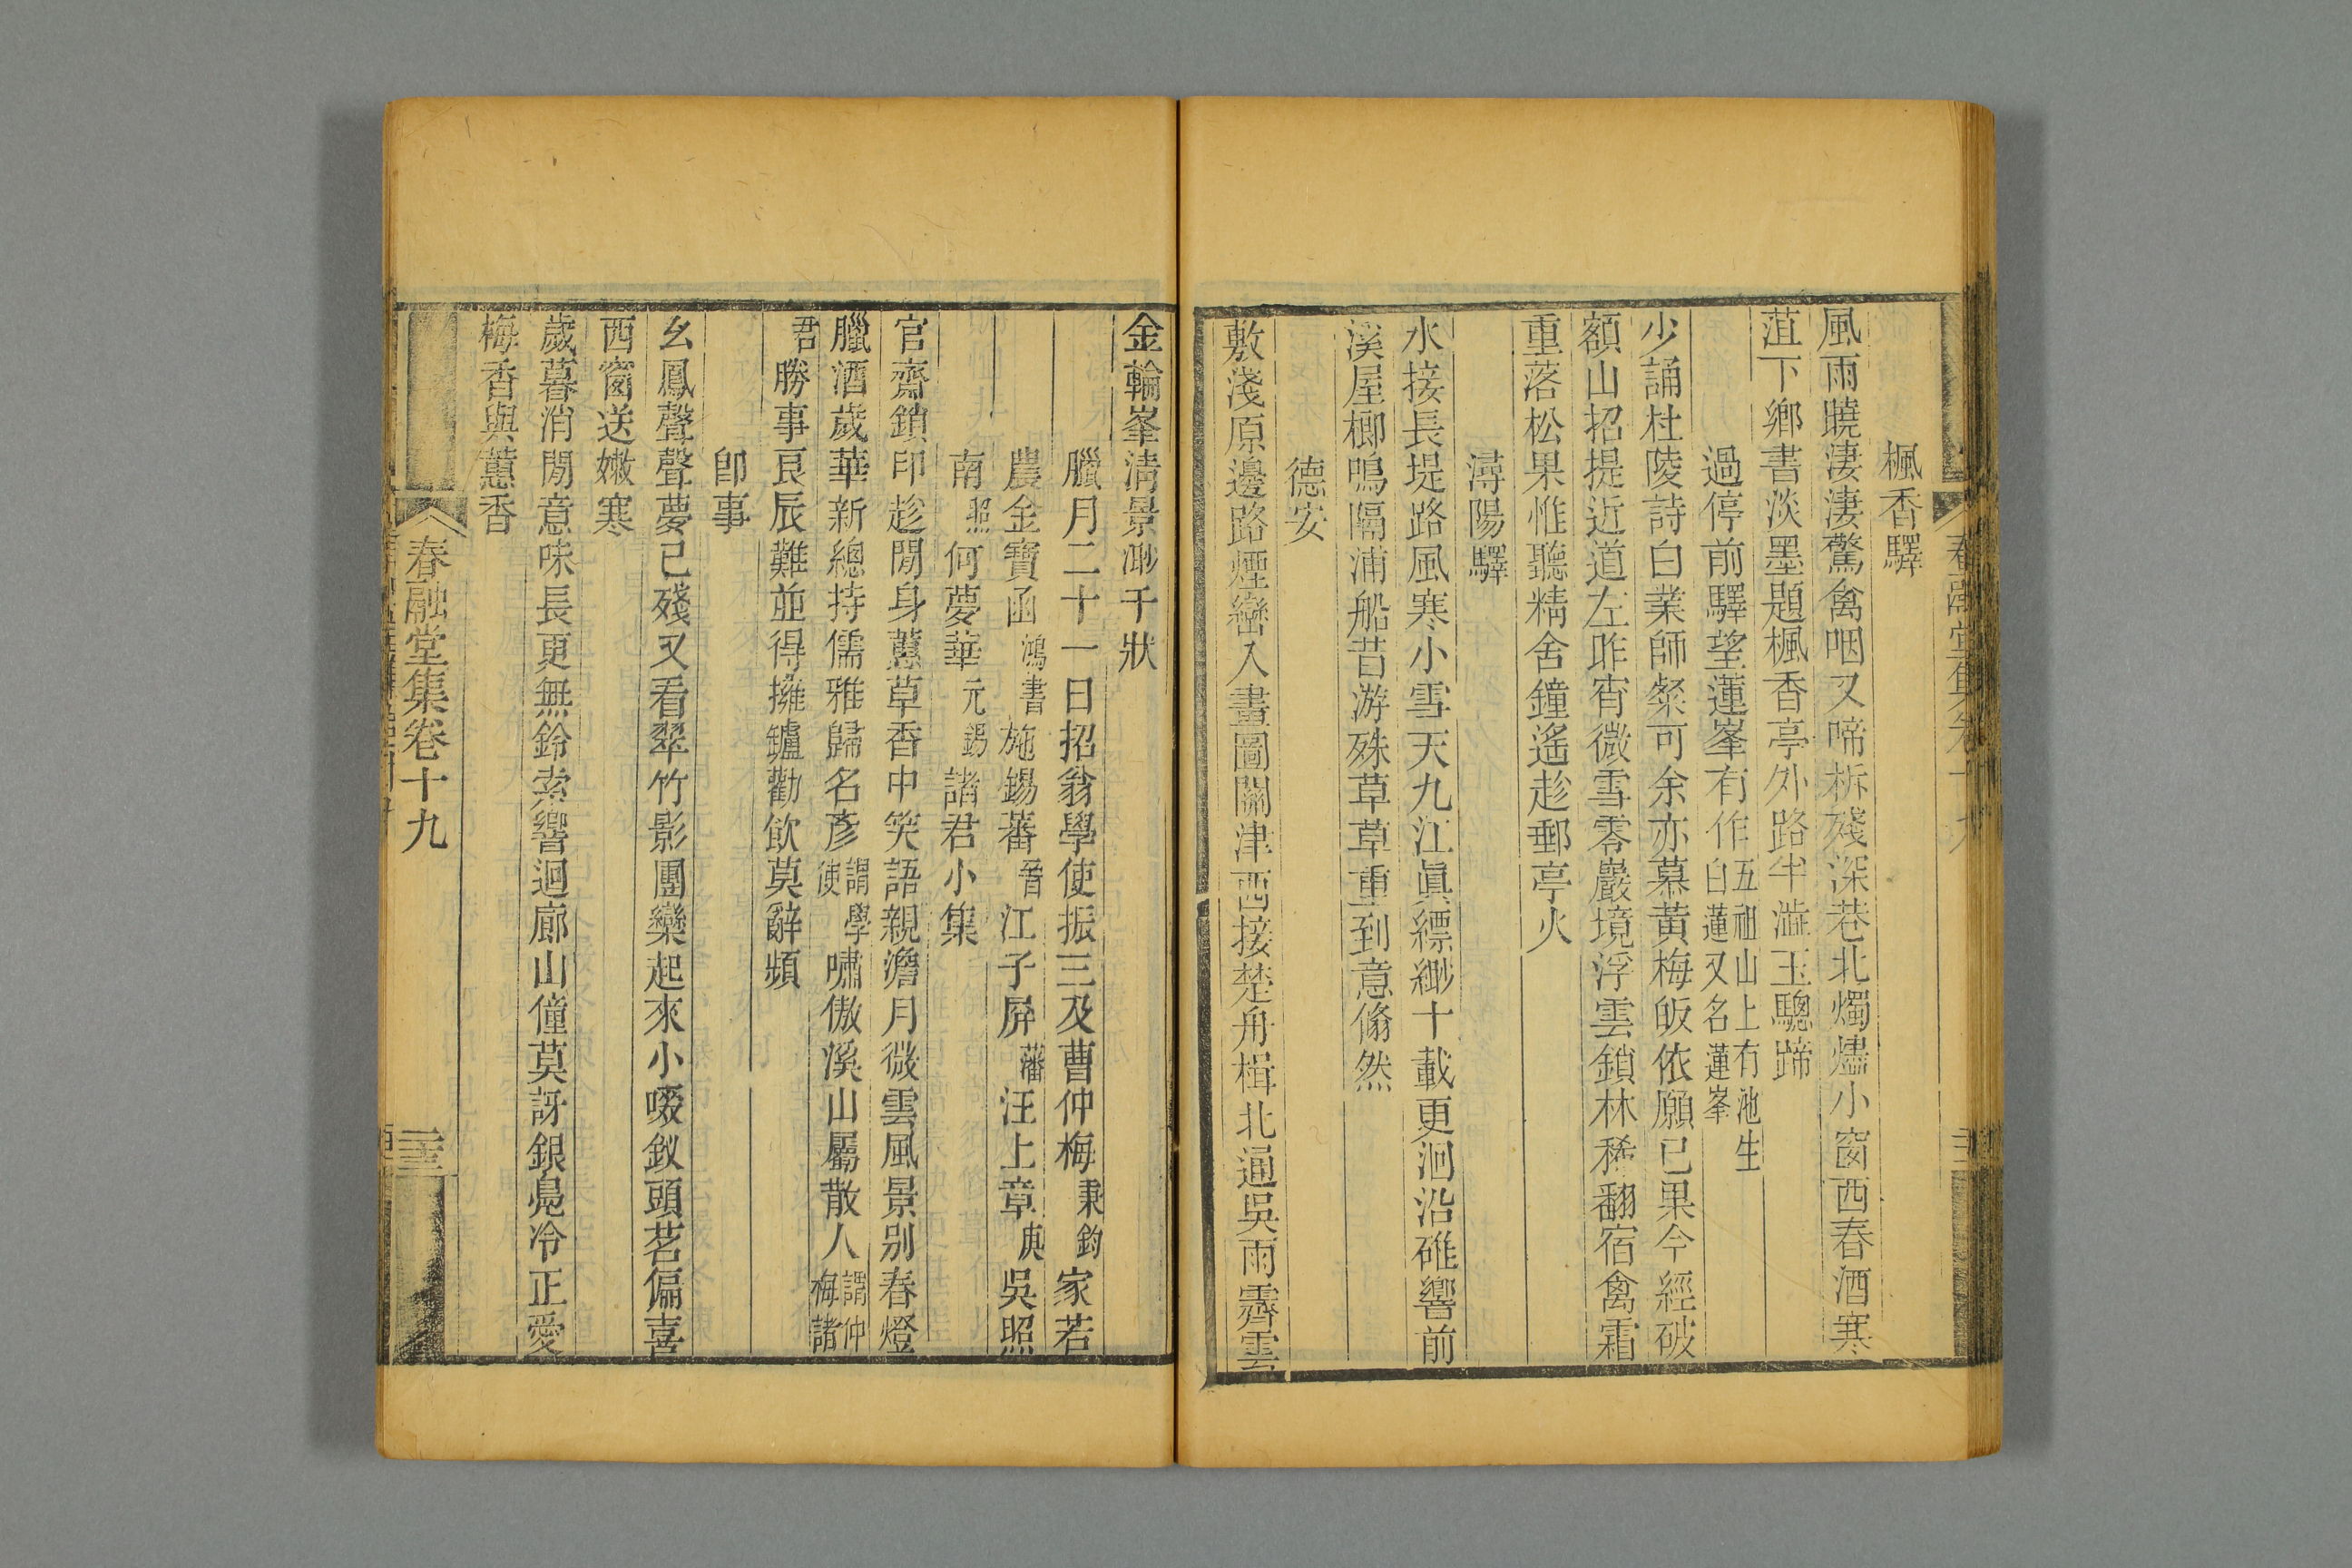 楓香驛
風雨曉淒淒驚禽咽又啼柝殘深巷北燭燼小窗西春酒寒
菹下鄉書淡墨題楓香亭外路半澁玉驄蹄
過停前驛望蓮峯有作五祖山上有池生白蓮又名蓮峯
少誦杜陵詩白業師粲可余亦慕黃梅皈依願已果今經破
額山招提近道左昨宵微雪零巖境浮雲鎖林稀翻宿禽霜
重落松果惟聽精舍鐘遙趁郵亭火
潯陽驛
水接長堤路風寒小雪天九江眞縹緲十載更洄沿碓響前
溪屋榔鳴隔浦船昔游殊草草重到意翛然
德安
敷淺原邊路煙巒入畫圖關津西接楚舟楫北通吳雨霽雲
金輪峯淸景渺千狀
臘月二十一日招翁學使振三及曹仲梅秉鈞家若
農金寶函鴻書施錫蕃晉江子屏藩汪上章庚吳照
南照何夢華元錫諸君小集
官齋鎖印趁閒身蕙草香中笑語親澹月微雲風景別春燈
臘酒歲華新總持儒雅歸名彥謂學使嘯傲溪山屬散人謂仲梅諸
君勝事良辰難並得擁鑪勸飮莫辭頻
卽事
幺鳳聲聲夢已殘又看翠竹影團欒起來小啜釵頭茗偏喜
西窗送嫩寒
歲暮消閒意味長更無鈴索響迴廊山僮莫訝銀鳧冷正愛
梅香與蕙香
春融堂集卷十九